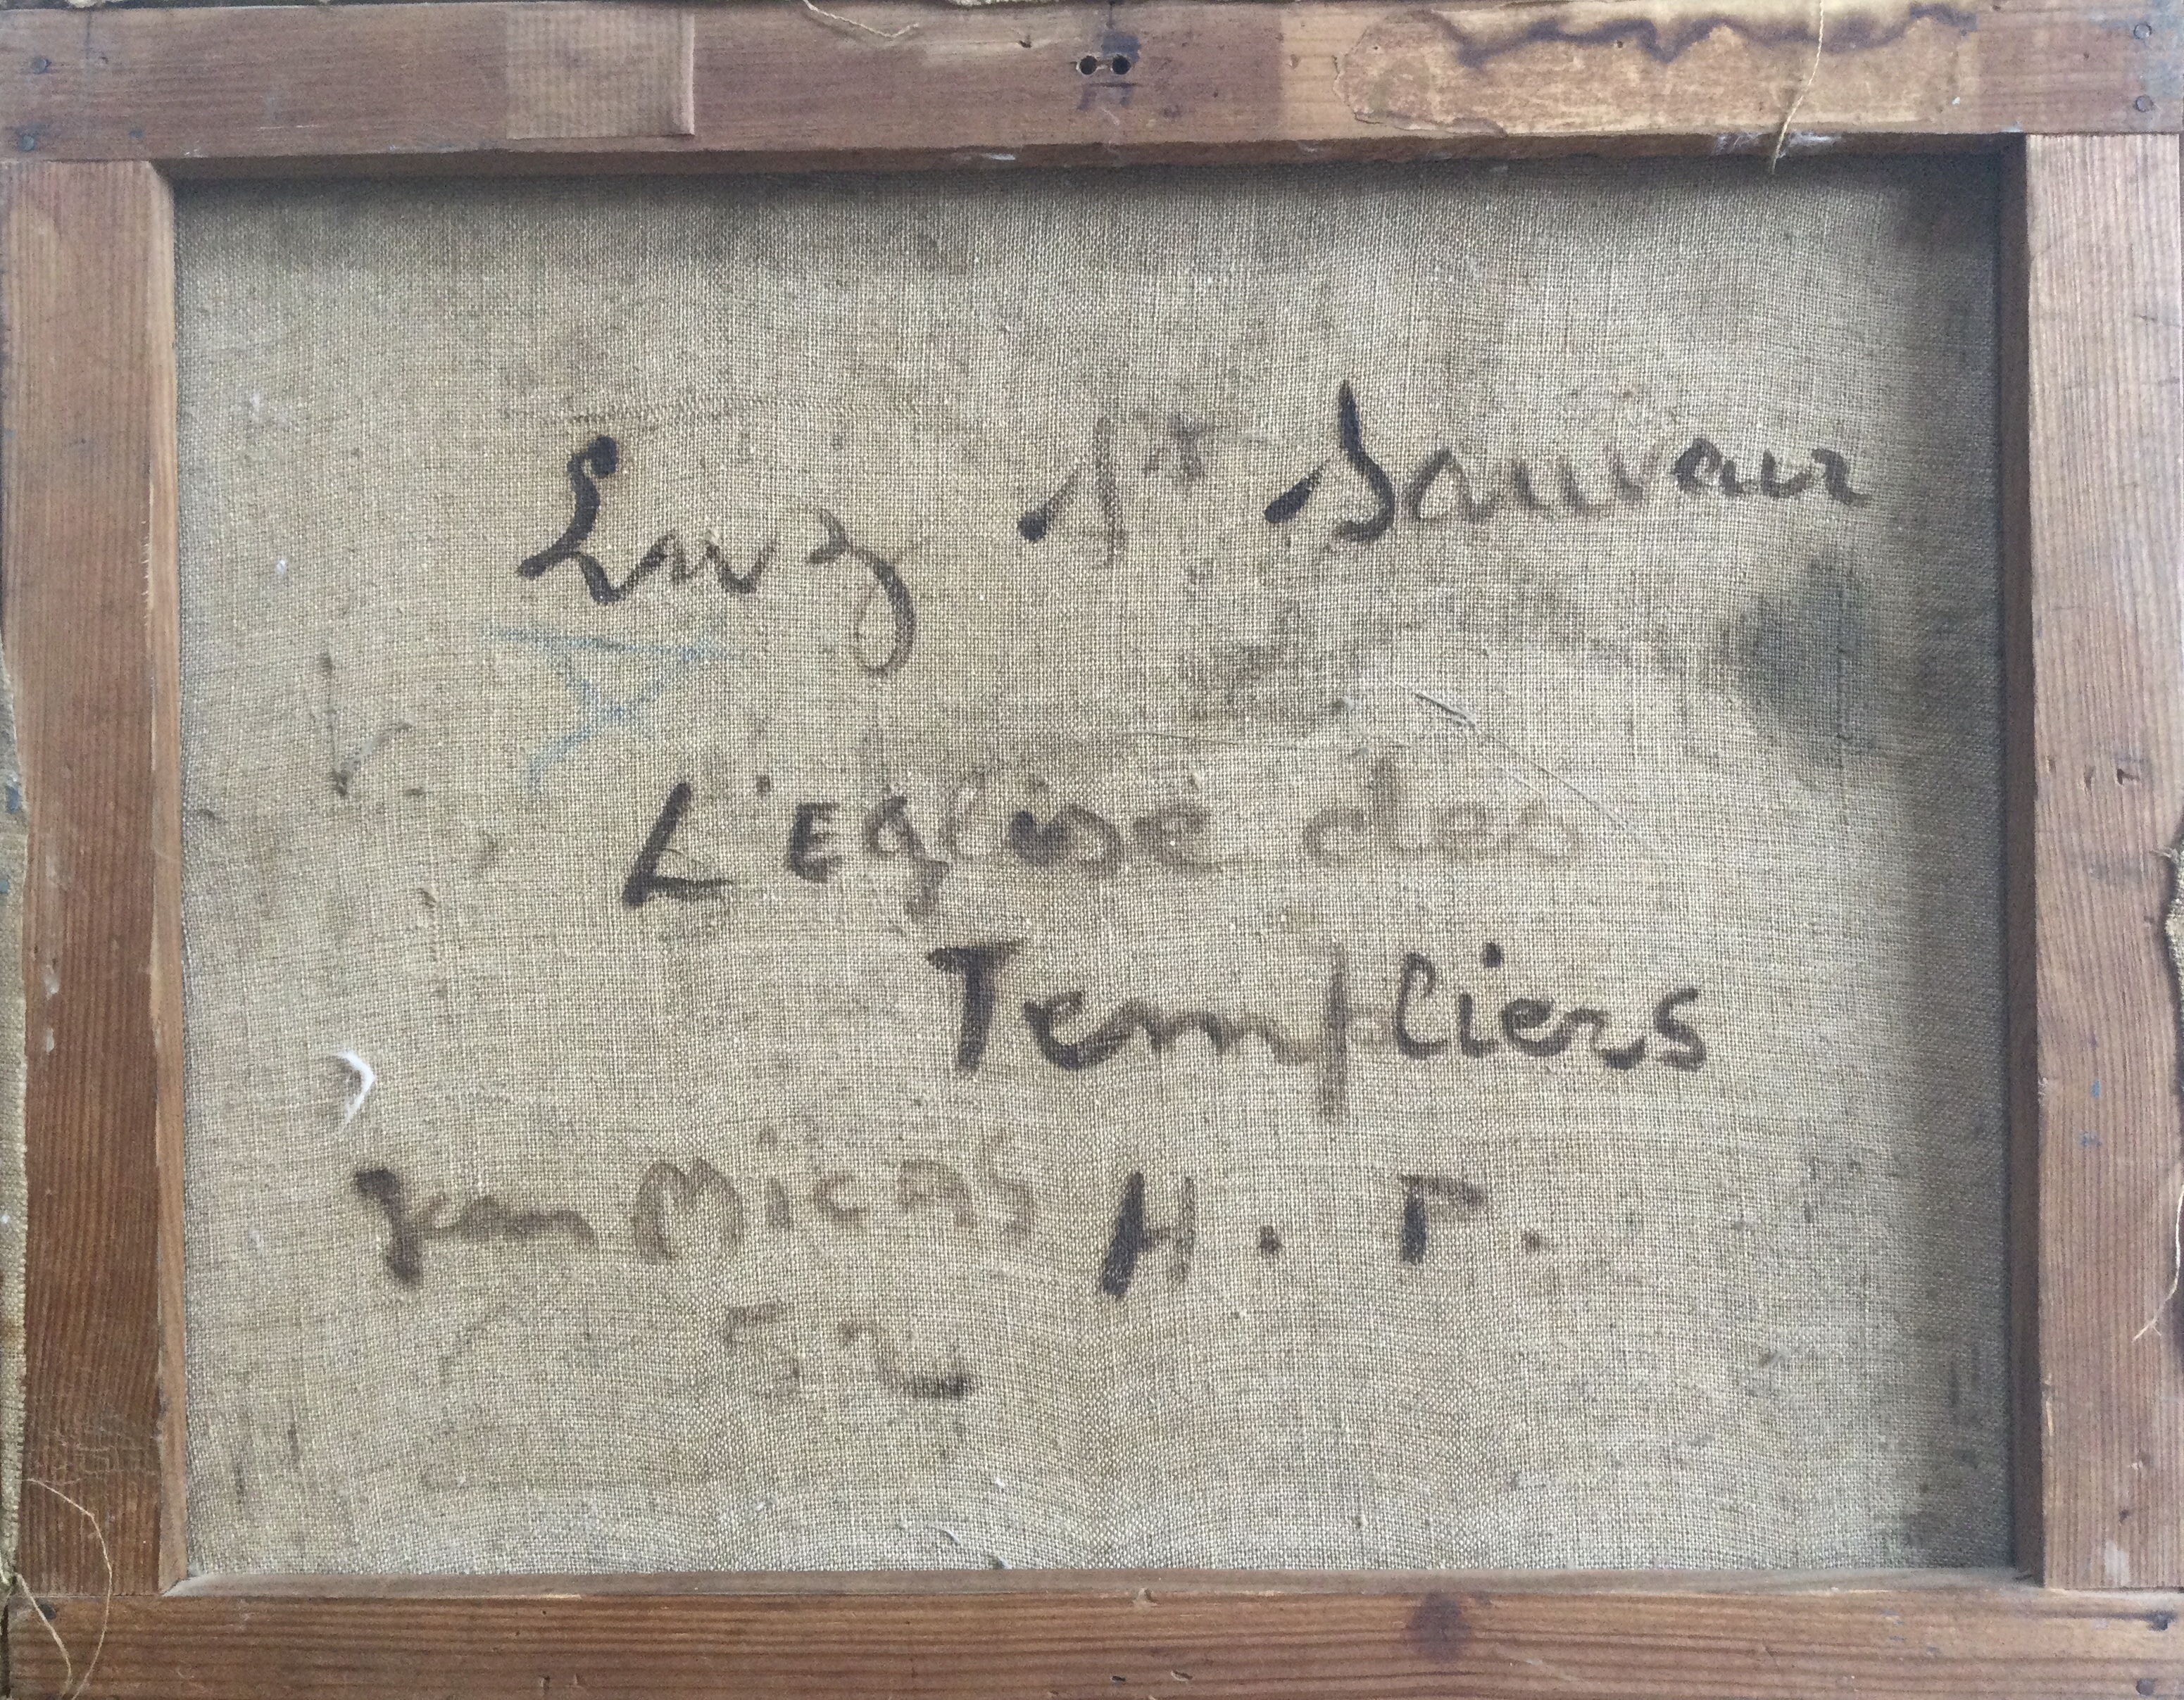 Luz St Sauveur
L'Eglise des
Templiers
Jean MicAS H. P.
52